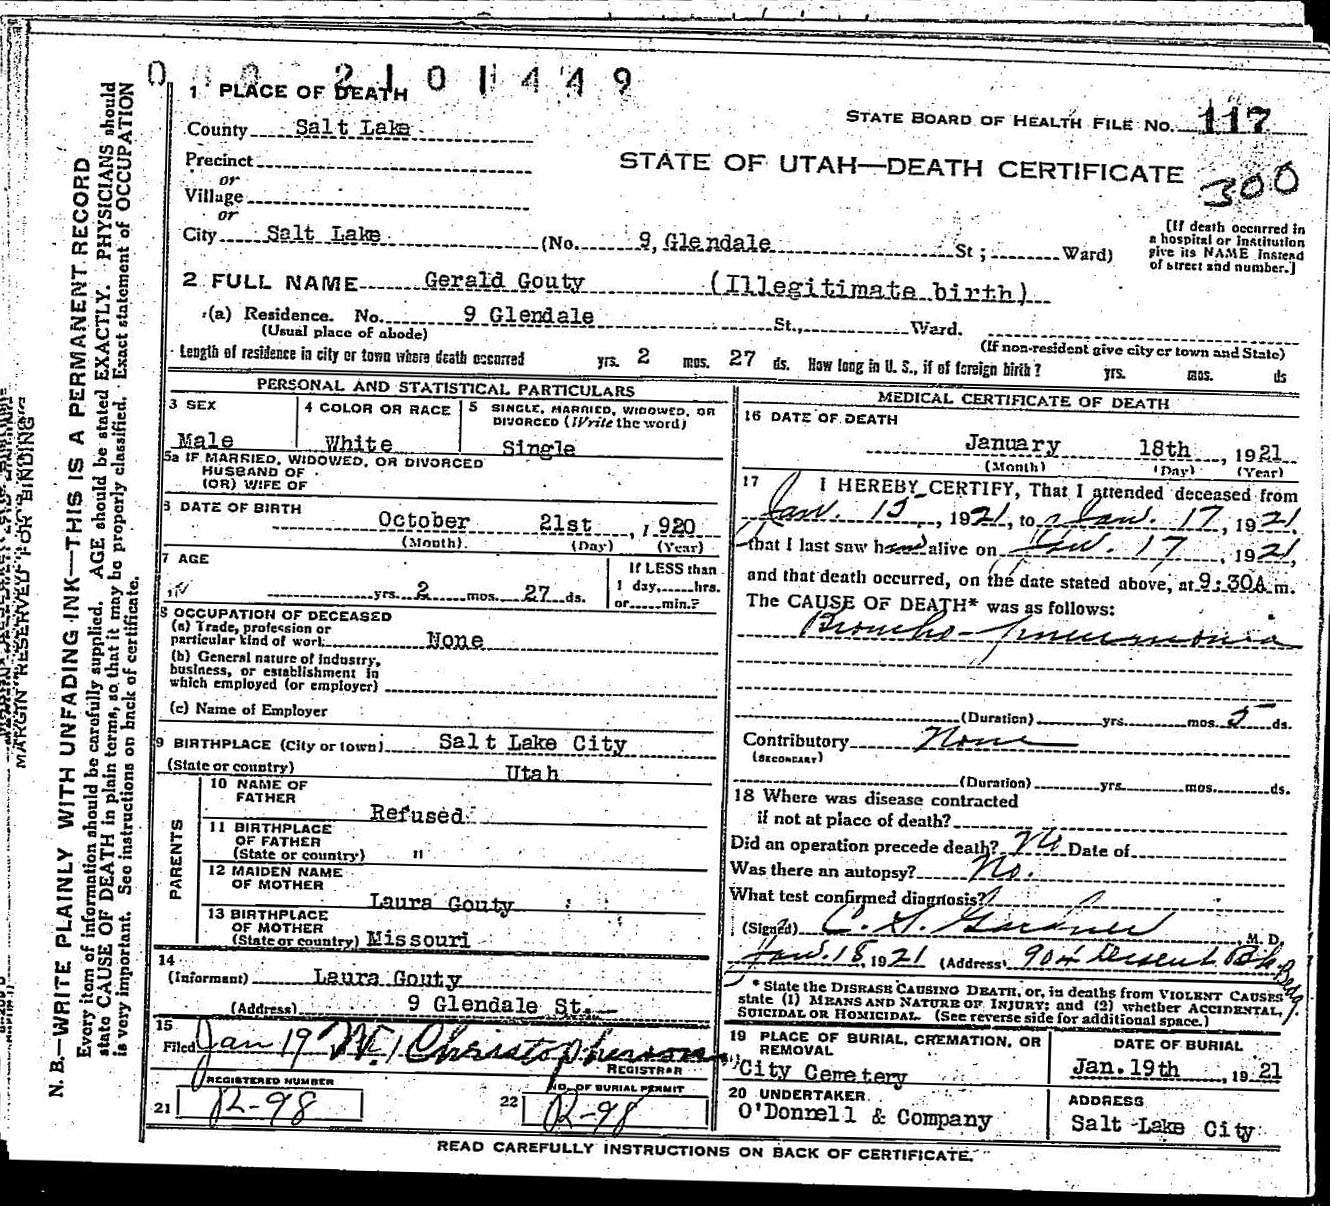 0 0 0 2 1 0 1 4 4 9
1 PLACE OF DEATH
STATE BOARD OF HEALTH FILE No. 117
County Salt Lake
STATE OF UTAH—DEATH CERTIFICATE
300
Precinct
or
Village
or
City Salt Lake (No. 9, Glendale St ; Ward)
[If death occurred in
a hospital or institution
give its NAME instead
of street and number.]
2 FULL NAME Gerald Gouty (Illegitimate birth)
(a) Residence. No. 9 Glendale St., Ward.
(Usual place of abode)
(If non-resident give city or town and State)
Length of residence in city or town where death occurred yrs. 2 mos. 27 ds. How long in U. S., if of foreign birth? yrs. mos. ds
PERSONAL AND STATISTICAL PARTICULARS
3 SEX
Male
4 COLOR OR RACE
White
5 SINGLE, MARRIED, WIDOWED, OR
DIVORCED (Write the word)
Single
5a IF MARRIED, WIDOWED, OR DIVORCED
HUSBAND OF
(OR) WIFE OF
6 DATE OF BIRTH
October 21st , 1920
(Month) (Day) (Year)
7 AGE
yrs. 2 mos. 27 ds.
If LESS than
1 day, hrs.
or min.?
8 OCCUPATION OF DECEASED
(a) Trade, profession or
particular kind of work None
(b) General nature of industry,
business, or establishment in
which employed (or employer)
(c) Name of Employer
9 BIRTHPLACE (City or town) Salt Lake City
(State or country) Utah
PARENTS
10 NAME OF
FATHER
Refused
11 BIRTHPLACE
OF FATHER
(State or country) "
12 MAIDEN NAME
OF MOTHER
Laura Gouty
13 BIRTHPLACE
OF MOTHER
(State or country) Missouri
14
(Informant) Laura Gouty
(Address) 9 Glendale St.
15
Filed Jan 19 Christopherson
REGISTRAR
REGISTERED NUMBER
21 R-98
NO. OF BURIAL PERMIT
22 R-98
MEDICAL CERTIFICATE OF DEATH
16 DATE OF DEATH
January 18th , 1921
(Month) (Day) (Year)
17 I HEREBY CERTIFY, That I attended deceased from
Jan. 15 , 1921, to Jan. 17, 1921
that I last saw him alive on Jan. 17 , 1921,
and that death occurred, on the date stated above, at 9:30A m.
The CAUSE OF DEATH* was as follows:
Broncho-pneumonia
(Duration) yrs. mos. 5 ds.
Contributory None
(SECONDARY)
(Duration) yrs. mos. ds.
18 Where was disease contracted
if not at place of death?
Did an operation precede death? No Date of
Was there an autopsy? No.
What test confirmed diagnosis?
(Signed) C. G. Gardner M. D.
Jan. 18, 1921 (Address 904 Deseret Bk Bldg.
* State the DISEASE CAUSING DEATH, or, in deaths from VIOLENT CAUSES
state (1) MEANS AND NATURE OF INJURY; and (2) whether ACCIDENTAL,
SUICIDAL OR HOMICIDAL. (See reverse side for additional space.)
19 PLACE OF BURIAL, CREMATION, OR
REMOVAL
City Cemetery
DATE OF BURIAL
Jan. 19th , 1921
20 UNDERTAKER
O'Donnell & Company
ADDRESS
Salt Lake City
READ CAREFULLY INSTRUCTIONS ON BACK OF CERTIFICATE.
MARGIN RESERVED FOR BINDING
N. B.—WRITE PLAINLY WITH UNFADING INK—THIS IS A PERMANENT RECORD
Every item of information should be carefully supplied. AGE should be stated EXACTLY. PHYSICIANS should
state CAUSE OF DEATH in plain terms, so that it may be properly classified. Exact statement of OCCUPATION
is very important. See instructions on back of certificate.